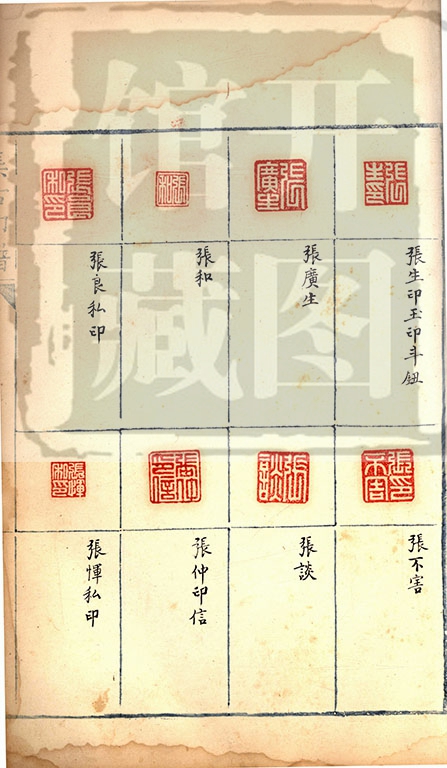 張生印玉印斗鈕
張廣生
張和
張良私印
張不害
張談
張仲印信
張惲私印
开图
馆藏